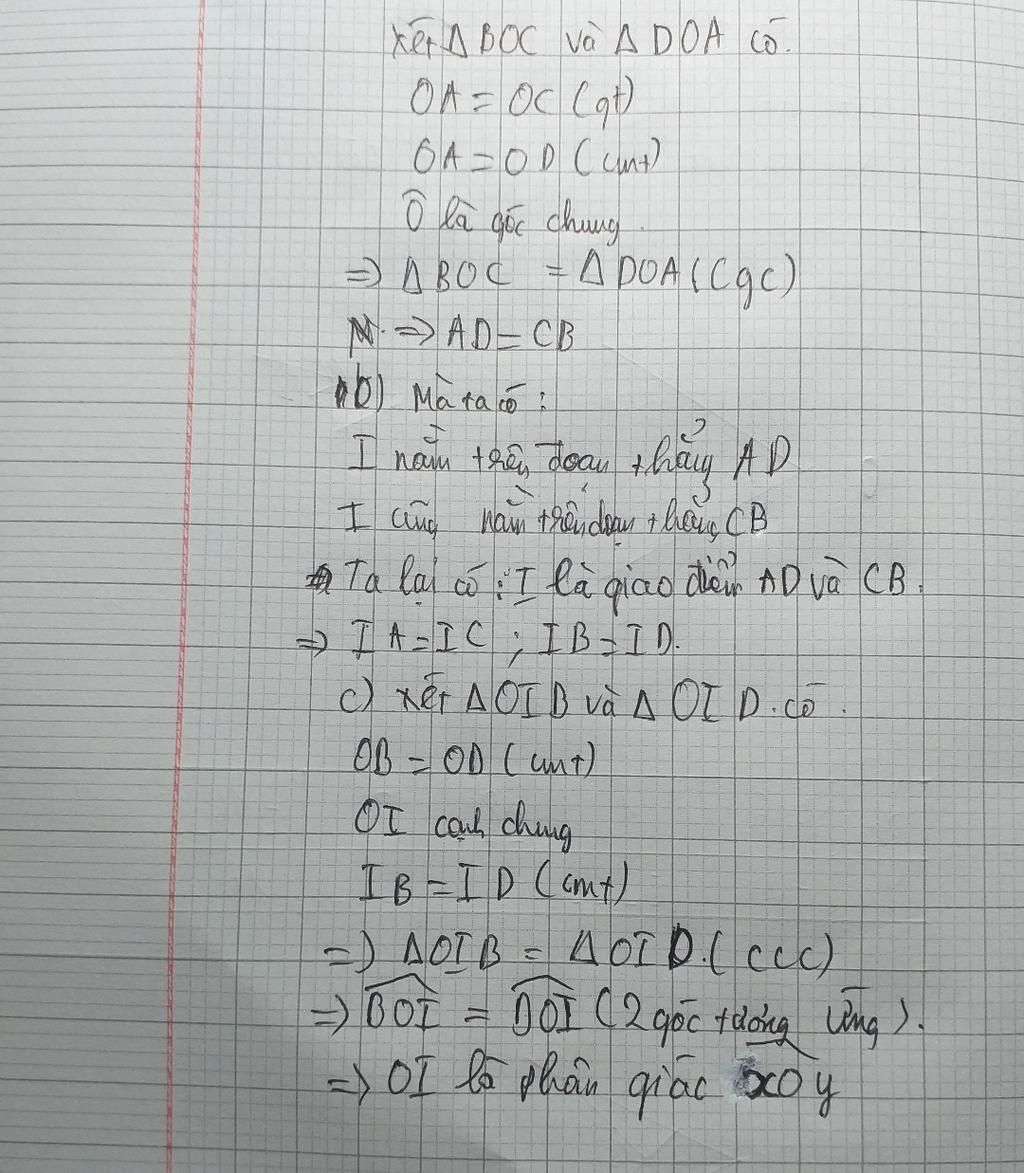 xét Δ BOC và Δ DOA có.
OA = OC (gt)
OA = OD (cmt)
Ô là góc chung.
=> Δ BOC = Δ DOA (cgc)
=> AD = CB
b) Mà ta có:
I nằm trên đoan thẳng AD
I cũng nằm trên đoạn thẳng CB
Ta lại có: I là giao điểm AD và CB.
=> IA = IC ; IB = ID.
c) xét Δ OIB và Δ OID. có.
OB = OD (cmt)
OI cạnh chung
IB = ID (cmt)
=> Δ OIB = Δ OID. (ccc)
=> \widehat{BOI} = \widehat{DOI} (2 góc tương ứng).
=> OI là phân giác \widehat{xOy}